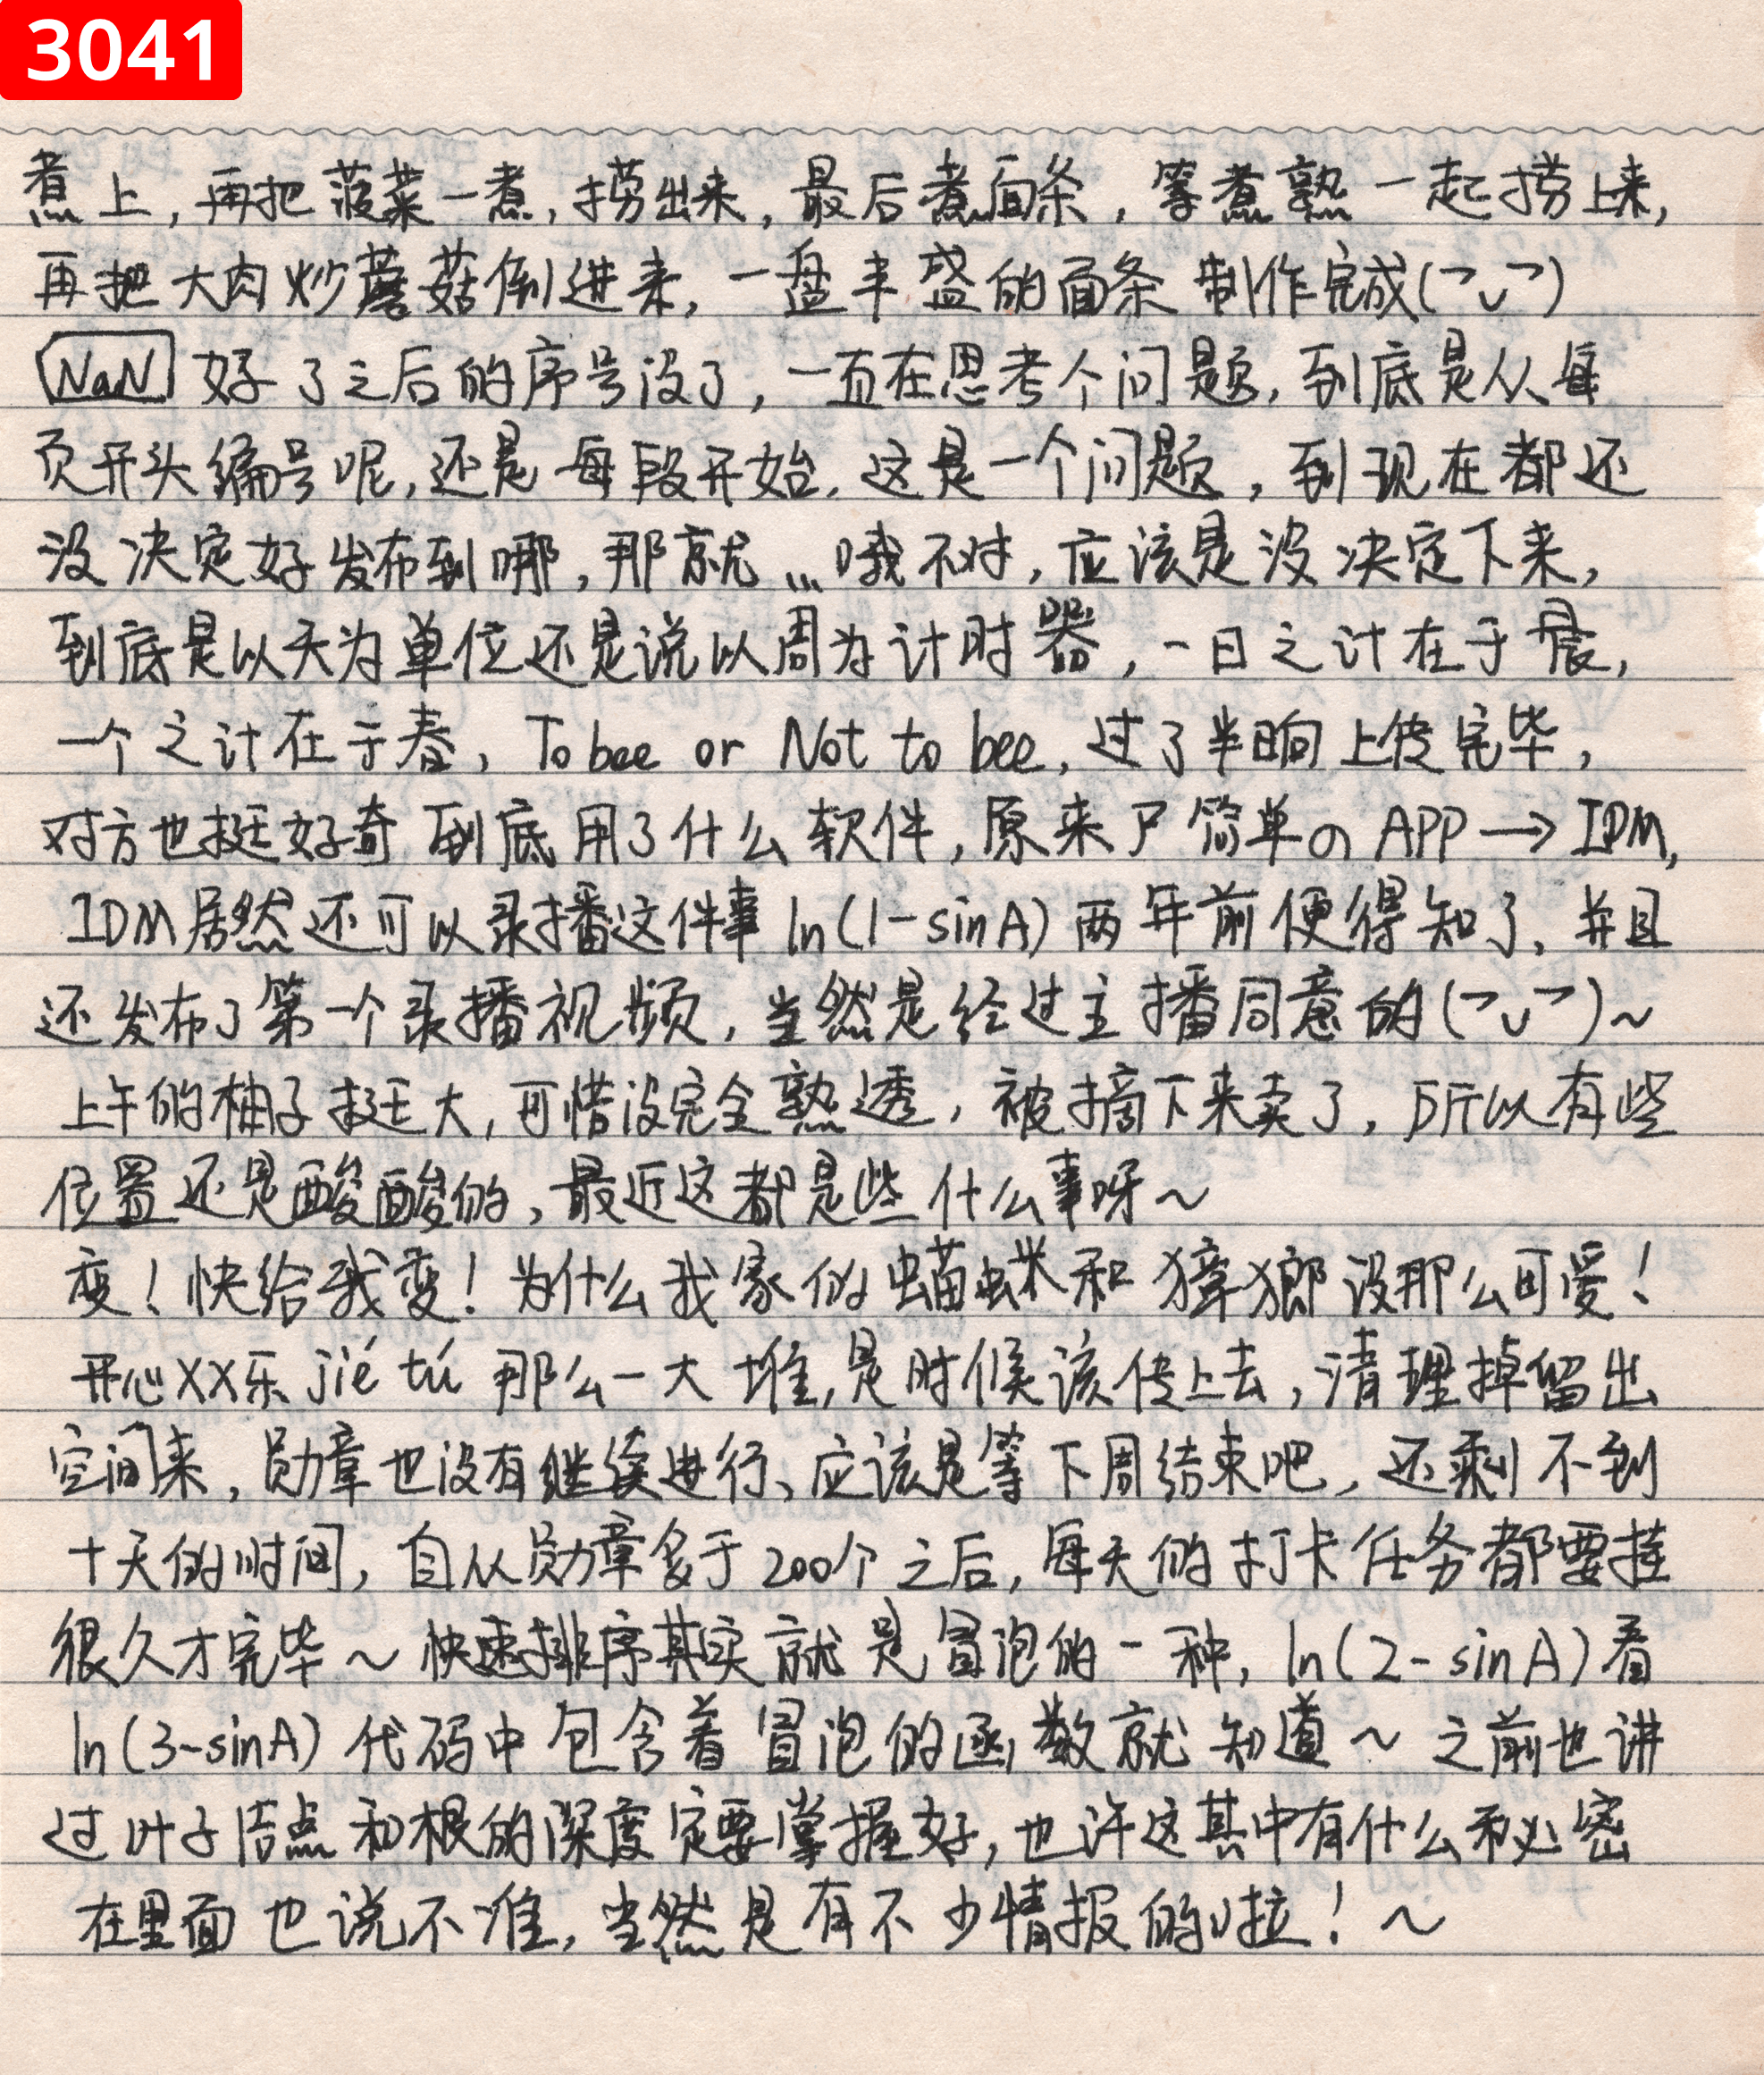 3041
煮上,再把菠菜一煮,捞出来,最后煮面条,等煮熟一起捞上来,
再把大肉炒蘑菇倒进来,一盘丰盛的面条制作完成(￢ᴗ￢)
NaN 好了之后的序号没了,一直在思考个问题,到底是从每
页开头编号呢,还是每段开始.这是一个问题,到现在都还
没决定好发布到哪,那就...哦不对,应该是没决定下来,
到底是以天为单位还是说以周为计时器,一日之计在于晨,
一个之计在于春,To bee or Not to bee,过了半晌上传完毕,
对方也挺好奇到底用了什么软件,原来尸简单の APP→IDM,
IDM居然还可以录播这件事ln(1-sinA)两年前便得知了、并且
还发布了第一个录播视频,当然是经过主播同意的(￢ᴗ￢)~
上午的柚子挺大,可惜没完全熟透,被摘下来卖了,所以有些
位置还是酸酸的,最近这都是些什么事呀~
变!快给我变!为什么我家的蝻蛛和獐狼没那么可爱!
开心XX乐 jié tú 那么一大堆,是时候该传上去,清理掉留出
空间来,勋章也没有继续进行、应该是等下周结束吧,还剩不到
十天的时间,自从勋章多于200个之后,每天的打卡任务都要挂
很久才完毕~快速排序其实就是冒泡的一种,ln(2-sinA)看
ln(3-sinA)代码中包含着冒泡的函数就知道~之前也讲
过叶子结点和根的深度定要掌握好,也许这其中有什么秘密
在里面也说不准,当然是有不少情报的啦!~